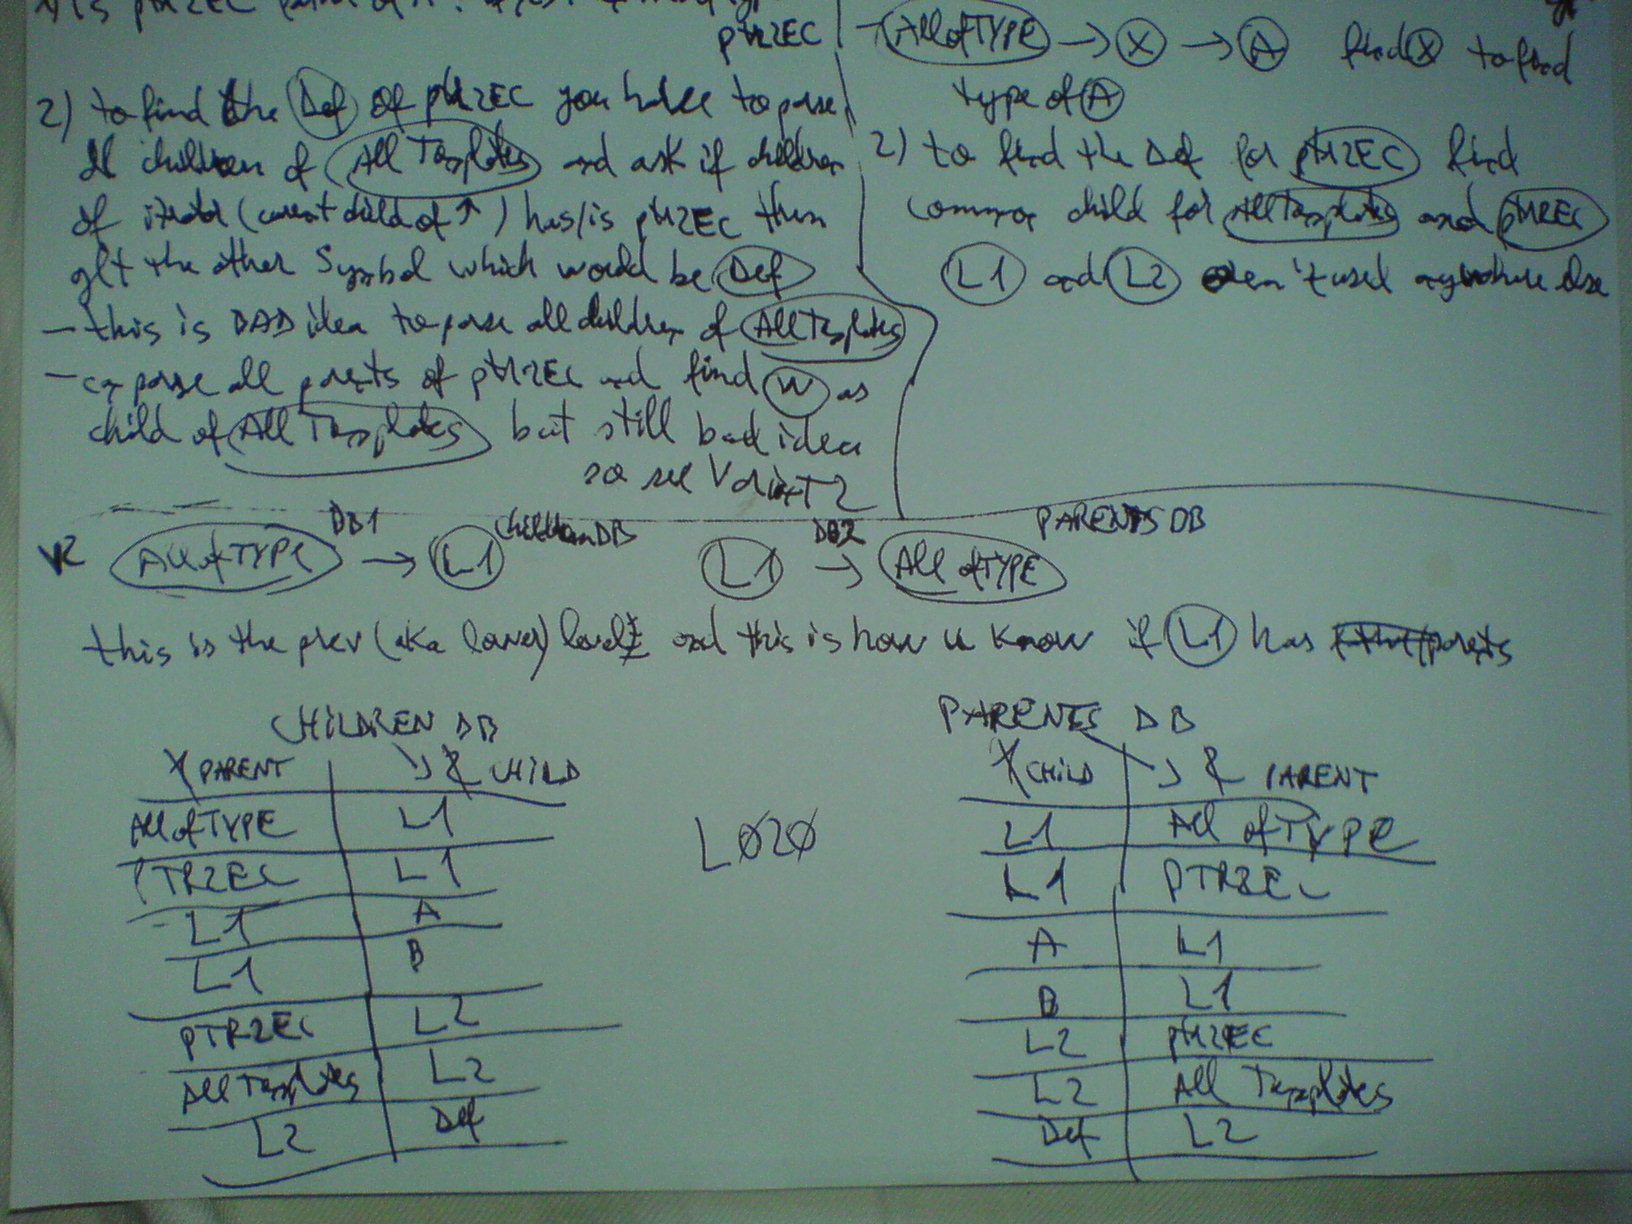 ptr2EC
2) to find the Def of ptr2EC you have to parse
all children of All Templates and ask if children
of iterator (current child of ↑) has/is ptr2EC then
get the other Symbol which would be Def
- this is BAD idea to parse all children of All Templates
- or parse all parents of ptr2EC and find W as
child of All Templates but still bad idea
so see Variant 2
AllofTYPE → X → A find X to find
type of A
2) to find the Def for ptr2EC find
common child for AllTemplates and ptr2EC
L1 and L2 aren't used anywhere else
V2 AllofTYPE DB1 → L1 Children DB L1 DB2 → All ofTYPE PARENTS DB
this is the prev (aka lower) level and this is how u know if L1 has parents
CHILDREN DB
* PARENT ↘ & CHILD
AllofTYPE L1
PTR2EC L1
L1 A
L1 B
PTR2EC L2
All Templates L2
L2 Def
L020
PARENTS DB
* CHILD ↘ & PARENT
L1 All ofTYPE
L1 PTR2EC
A L1
B L1
L2 ptr2EC
L2 All Templates
Def L2